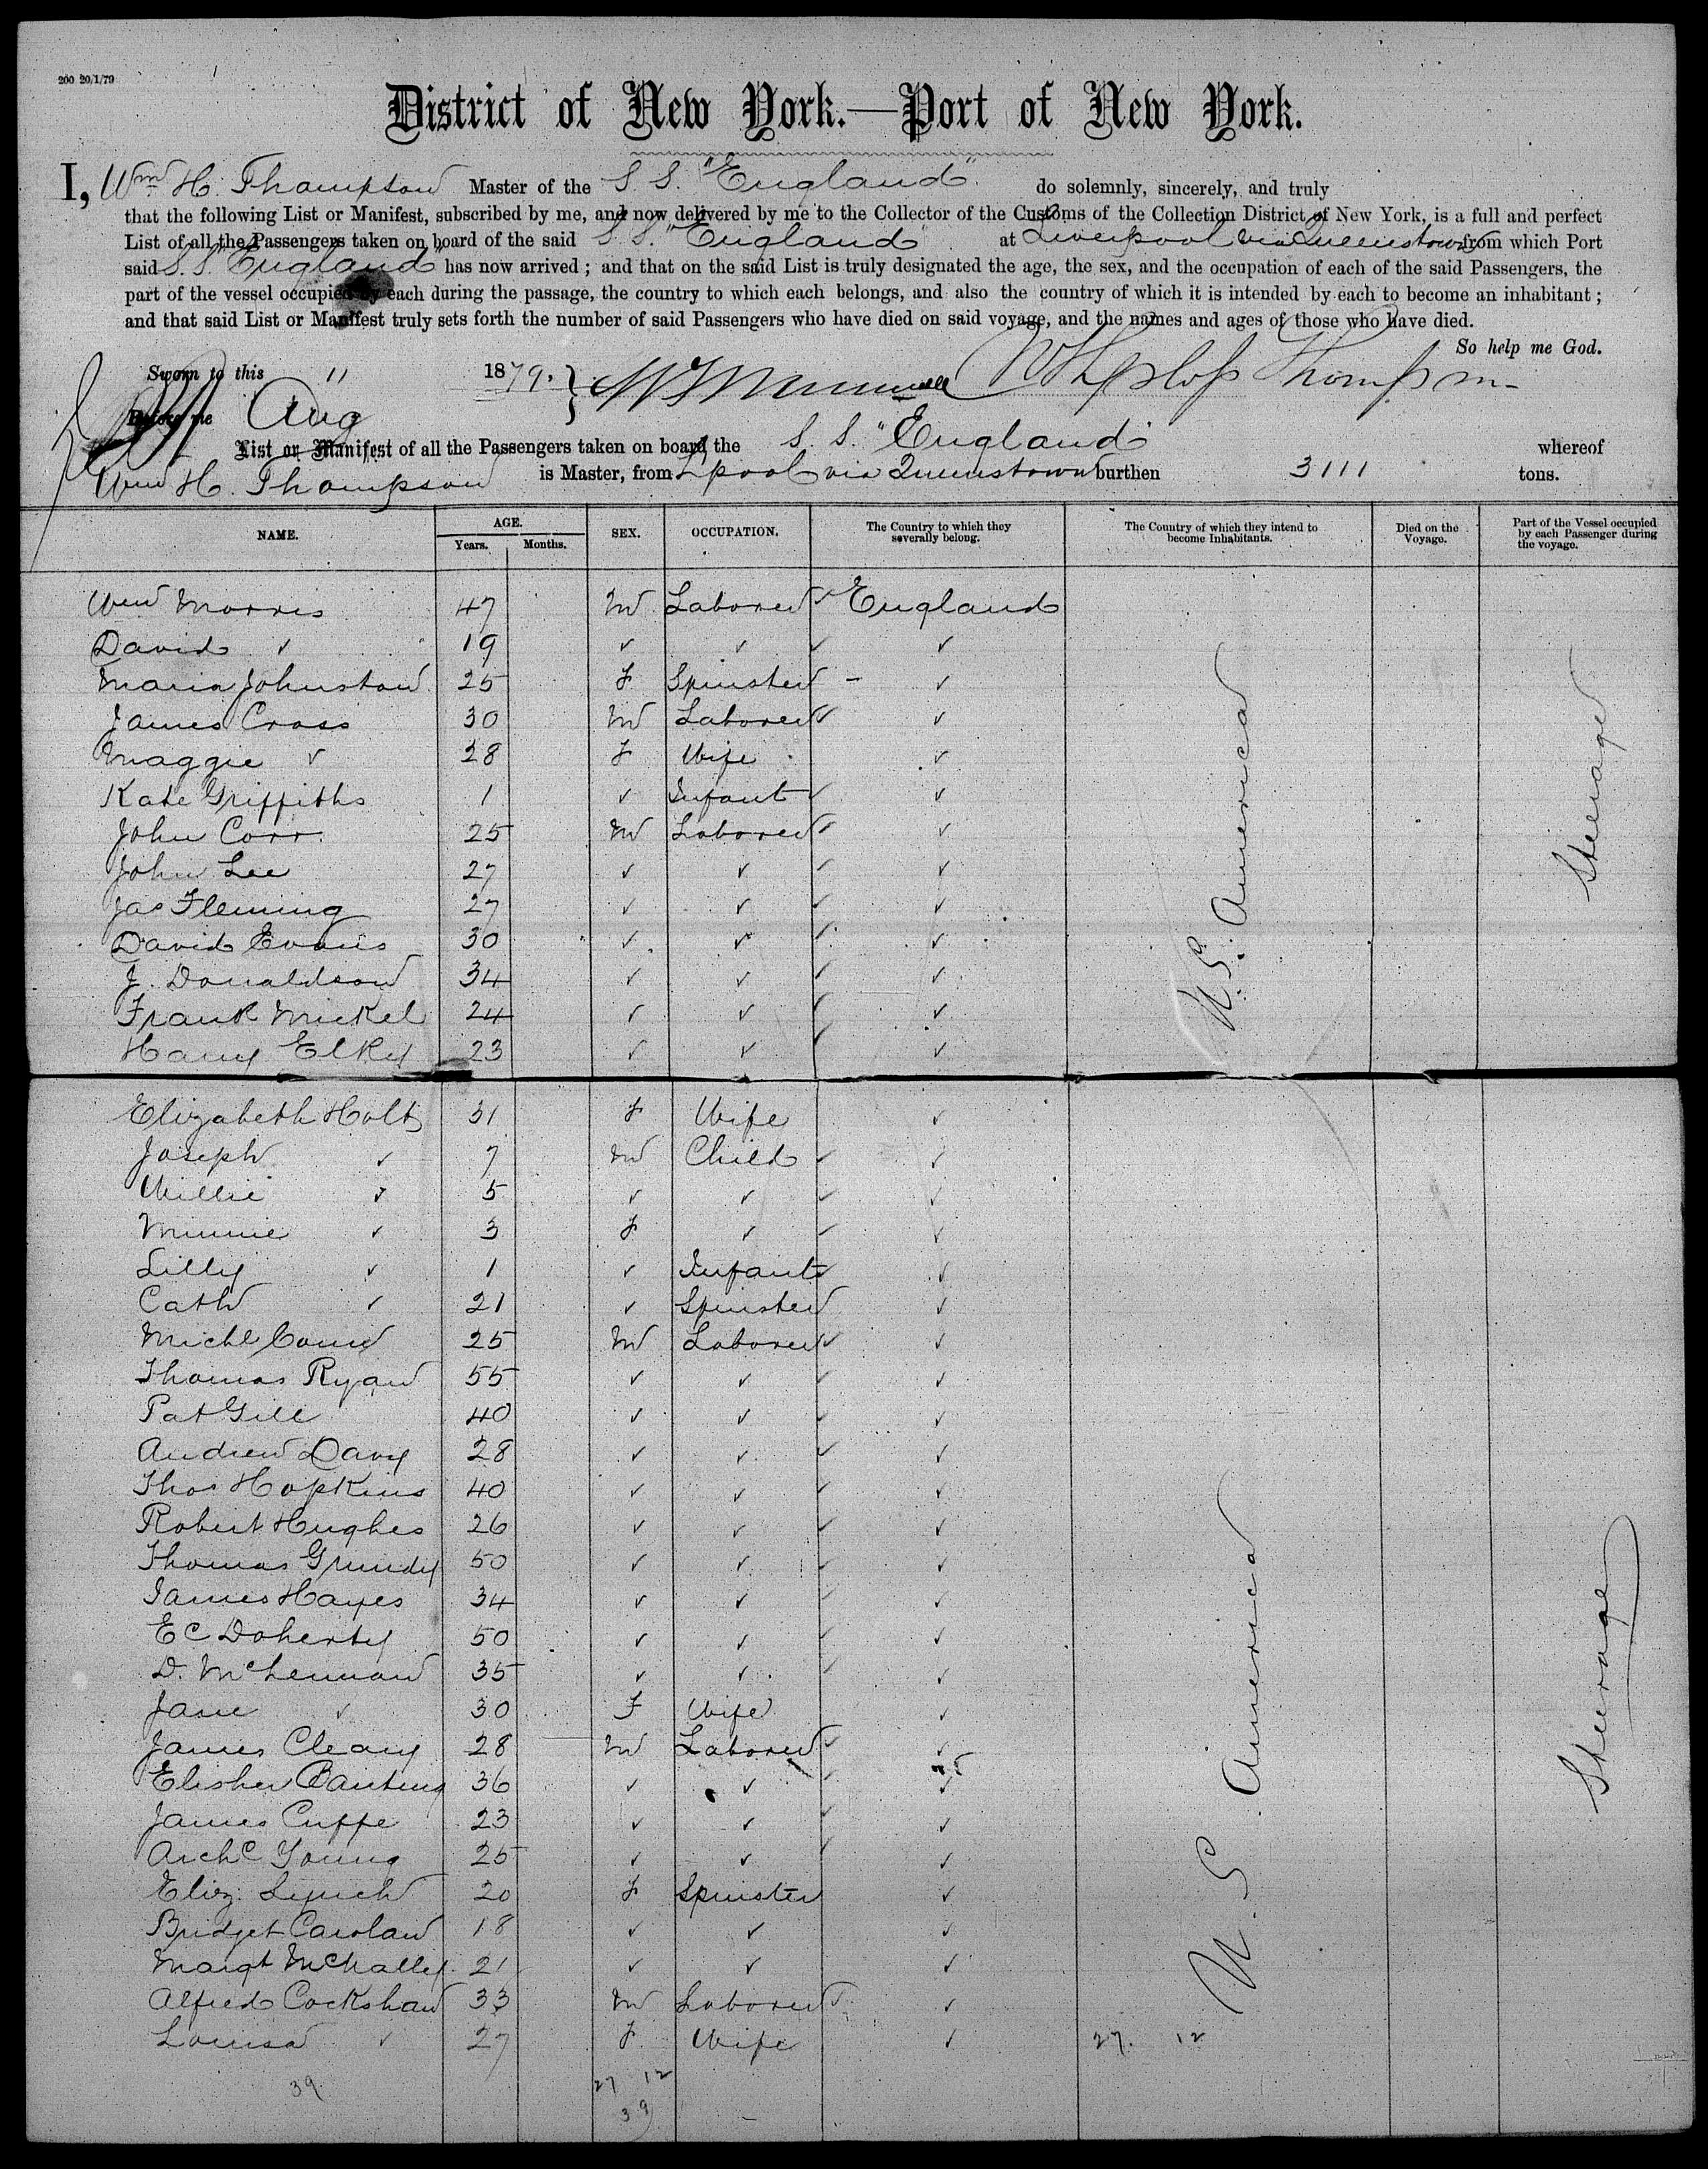 200 20/1/79
District of New York.—Port of New York.
I, Wm H. Thompson Master of the S S. "England" do solemnly, sincerely, and truly
that the following List or Manifest, subscribed by me, and now delivered by me to the Collector of the Customs of the Collection District of New York, is a full and perfect
List of all the Passengers taken on board of the said S. S. "England" at Liverpool via Queenstown from which Port
said S. S. "England" has now arrived; and that on the said List is truly designated the age, the sex, and the occupation of each of the said Passengers, the
part of the vessel occupied by each during the passage, the country to which each belongs, and also the country of which it is intended by each to become an inhabitant;
and that said List or Manifest truly sets forth the number of said Passengers who have died on said voyage, and the names and ages of those who have died.
So help me God.
Sworn to this 11 1879. Thompson
Before me Aug
List or Manifest of all the Passengers taken on board the S. S. "England" whereof
Wm H. Thompson is Master, from L'pool via Queenstown burthen 3111 tons.
NAME. AGE. Years. Months. SEX. OCCUPATION. The Country to which they severally belong. The Country of which they intend to become Inhabitants. Died on the Voyage. Part of the Vessel occupied by each Passenger during the voyage.
Wm Morris 47 M Laborer ✓ England
David ✓ 19 ✓ ✓ ✓ ✓
Maria Johnston 25 F Spinster - ✓
James Cross 30 M Laborer ✓ ✓
Maggie ✓ 28 F Wife ✓
Kate Griffiths 1 ✓ Infant ✓ ✓
John Corr 25 M Laborer ✓ ✓
John Lee 27 ✓ ✓ ✓ ✓
Jas Fleming 27 ✓ ✓ ✓ ✓
David Evans 30 ✓ ✓ ✓ ✓
J. Donaldson 34 ✓ ✓ ✓ ✓
Frank Mickel 24 ✓ ✓ ✓ ✓
Harry Elky 23 ✓ ✓ ✓ ✓
U.S. America
Steerage
Elizabeth Holt 31 F Wife ✓
Joseph ✓ 7 M Child ✓ ✓
Willie ✓ 5 ✓ ✓ ✓ ✓
Minnie ✓ 3 F ✓ ✓ ✓
Lilly ✓ 1 ✓ Infant ✓ ✓
Cath ✓ 21 ✓ Spinster ✓
Michl 25 M Laborer ✓ ✓
Thomas Ryan 55 ✓ ✓ ✓ ✓
Pat Gill 40 ✓ ✓ ✓ ✓
Andrew Davy 28 ✓ ✓ ✓ ✓
Thos Hopkins 40 ✓ ✓ ✓ ✓
Robert Hughes 26 ✓ ✓ ✓ ✓
Thomas Grundy 50 ✓ ✓ ✓ ✓
James Hayes 34 ✓ ✓ ✓ ✓
Ed Doherty 50 ✓ ✓ ✓ ✓
D. McLennan 35 ✓ ✓ ✓ ✓
Jane ✓ 30 F Wife ✓
James Cleary 28 M Laborer ✓ ✓
Elisher Banting 36 ✓ ✓ ✓ ✓
James Cuffe 23 ✓ ✓ ✓ ✓
Archd Young 25 ✓ ✓ ✓ ✓
Eliz. Lynch 20 F Spinster ✓
Bridget Carolan 18 ✓ ✓ ✓
Margt McNalley 21 ✓ ✓ ✓
Alfred Cockshaw 33 M Laborer ✓ ✓
Louisa ✓ 27 F Wife ✓ 27. 12
U.S. America
Steerage
39 27 12
39